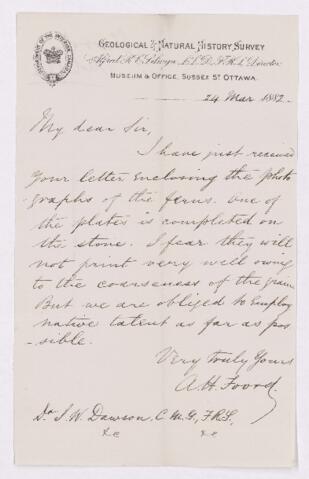 GEOLOGICAL & NATURAL HISTORY SURVEY
Alfred R. C. Selwyn, L.L.D., F.R.S., Director.
MUSEUM & OFFICE, SUSSEX ST OTTAWA.
24 Mar 1882
My dear Sir,
I have just received
your letter enclosing the photo
graphs of the ferns. One of
the plates is completed on
the stone. I fear they will
not print very well owing
to the coarseness of the grain
But we are obliged to employ
native talent as far as pos
-sible.
Very truly Yours
A. H. Foord.
Dr J. W. Dawson, C.M.G., F.R.S.,
&c &c